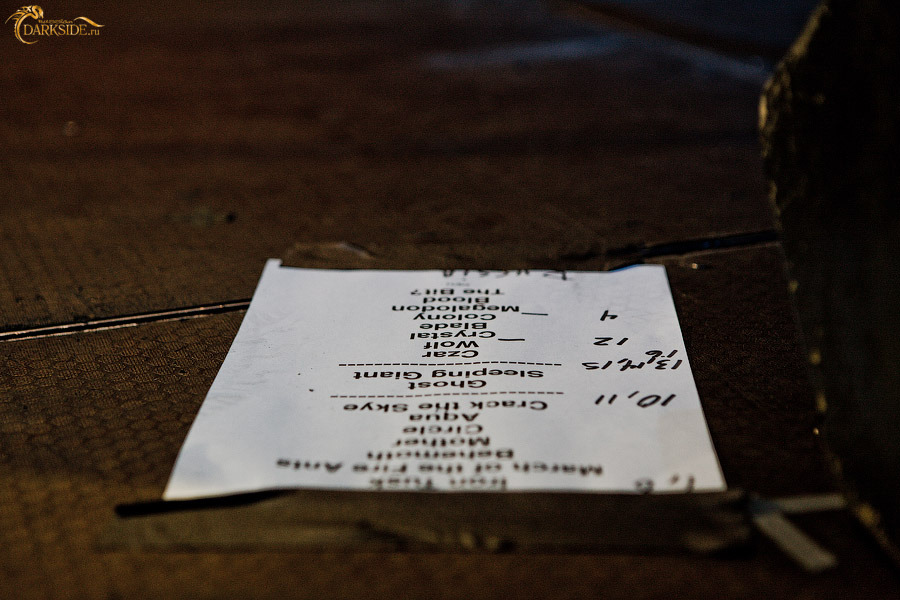 Iron Tusk
March of the Fire Ants
Behemoth
Mother
Circle
Aqua
10, 11 Crack the Skye
Ghost
Sleeping Giant
13, 14, 15
16
Czar
12 Wolf
Crystal
Blade
4 Colony
Megalodon
Blood
The Bit?
DARKSIDE.ru